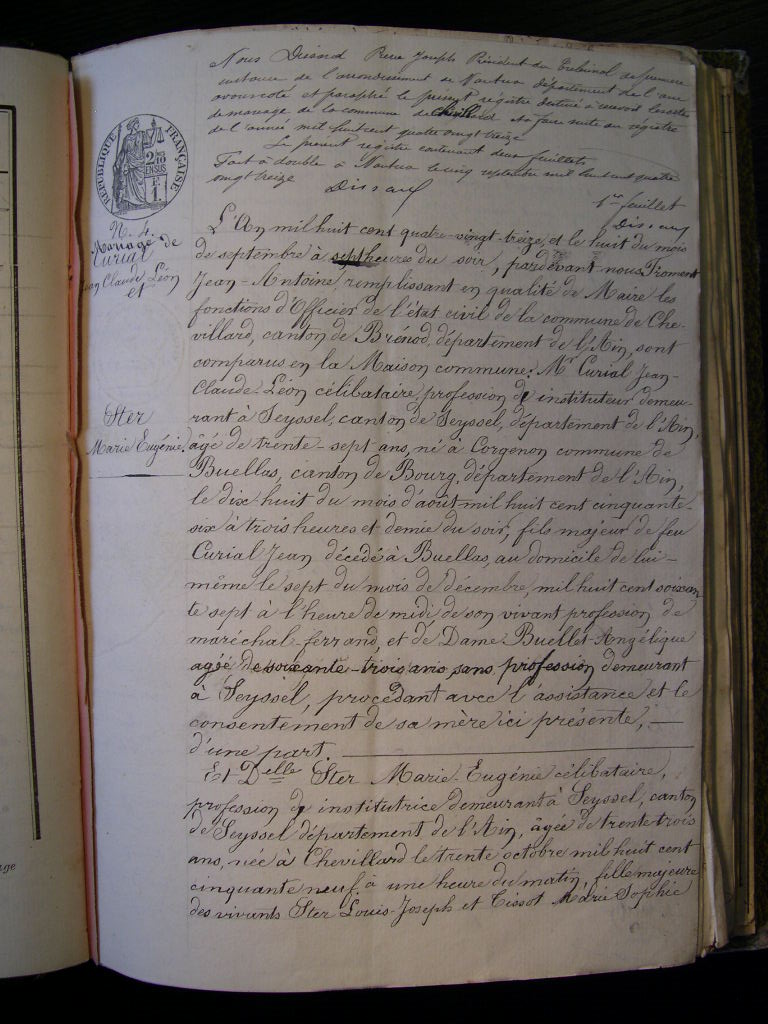 Nous Président du Tribunal de première
instance de l'arrondissement de Nantua département de l'ain
avons coté et paraphé le présent registre destiné à recevoir les actes
de mariage de la commune de Chevillard et à faire suite au registre
de l'année mil huit cent quatre vingt treize
Le présent registre contenant deux feuillets
Fait à double à Nantua le cinq septembre mil huit cent quatre
vingt treize
1er feuillet
RÉPUBLIQUE FRANÇAISE
N. 4.
Mariage
Curial de
Jean Claude Léon
et
Ster
Marie Eugénie.
L'An mil huit cent quatre-vingt-treize, et le huit du mois
de septembre à sept heures du soir, pardevant nous Froment
Jean-Antoine remplissant en qualité de Maire les
fonctions d'Officier de l'état civil de la commune de Che-
villard, canton de Brénod, département de l'Ain, sont
comparus en la Maison commune: Mr Curial Jean-
Claude-Léon célibataire, profession d'instituteur demeu-
rant à Seyssel, canton de Seyssel, département de l'Ain,
âgé de trente-sept ans, né à Corgenon commune de
Buellas, canton de Bourg, département de l'Ain,
le dix huit du mois d'août mil huit cent cinquante-
six à trois heures et demie du soir, fils majeur de feu
Curial Jean décédé à Buellas, au domicile de lui-
même le sept du mois de décembre, mil huit cent soixan-
te sept à l'heure de midi de son vivant profession de
maréchal-ferrand, et de Dame Buellet Angélique
agée de soixante-trois ans, sans profession demeurant
à Seyssel, procédant avec l'assistance et le
consentement de sa mère ici présente,
d'une part.
Et Delle Ster Marie-Eugénie célibataire,
profession d'institutrice demeurant à Seyssel, canton
de Seyssel département de l'Ain, âgée de trente-trois
ans, née à Chevillard le trente octobre mil huit cent
cinquante neuf, à une heure du matin, fille majeure
des vivants Ster Louis-Joseph et Tissot Marie Sophie